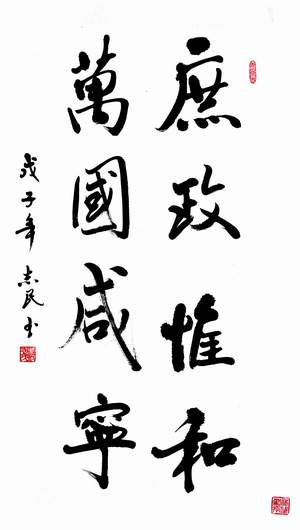 庶政惟和
萬國咸寧
戊子年 志民书